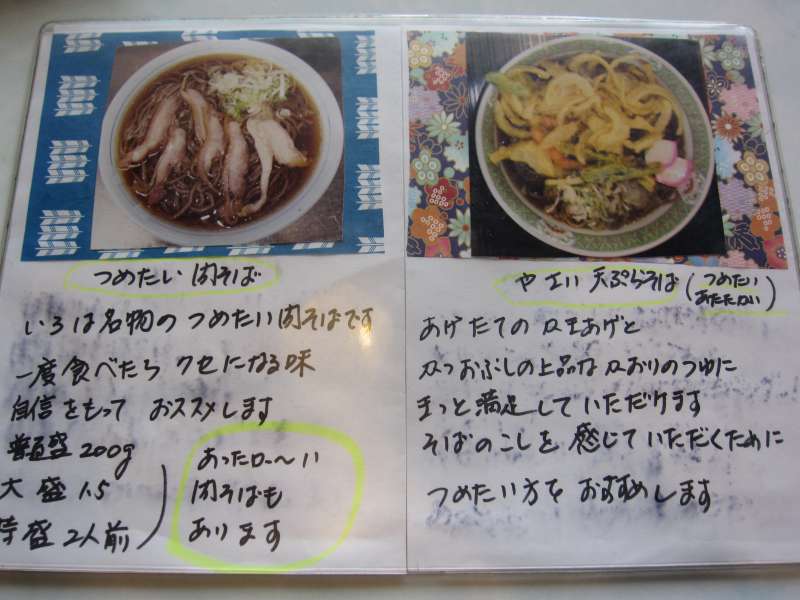 つめたい 肉そば
いろは名物の つめたい肉そばです
一度食べたら クセになる味
自信をもって おススメします
普通盛 200g
大盛 1.5
特盛 2人前
あったか〜い
肉そばも
あります
ヤサイ 天ぷらそば (つめたい
あたたかい)
あげたての かきあげと
かつおぶしの上品なかおりのつゆに
きっと満足していただけます
そばのこしを 感じていただくために
つめたい方を おすすめします